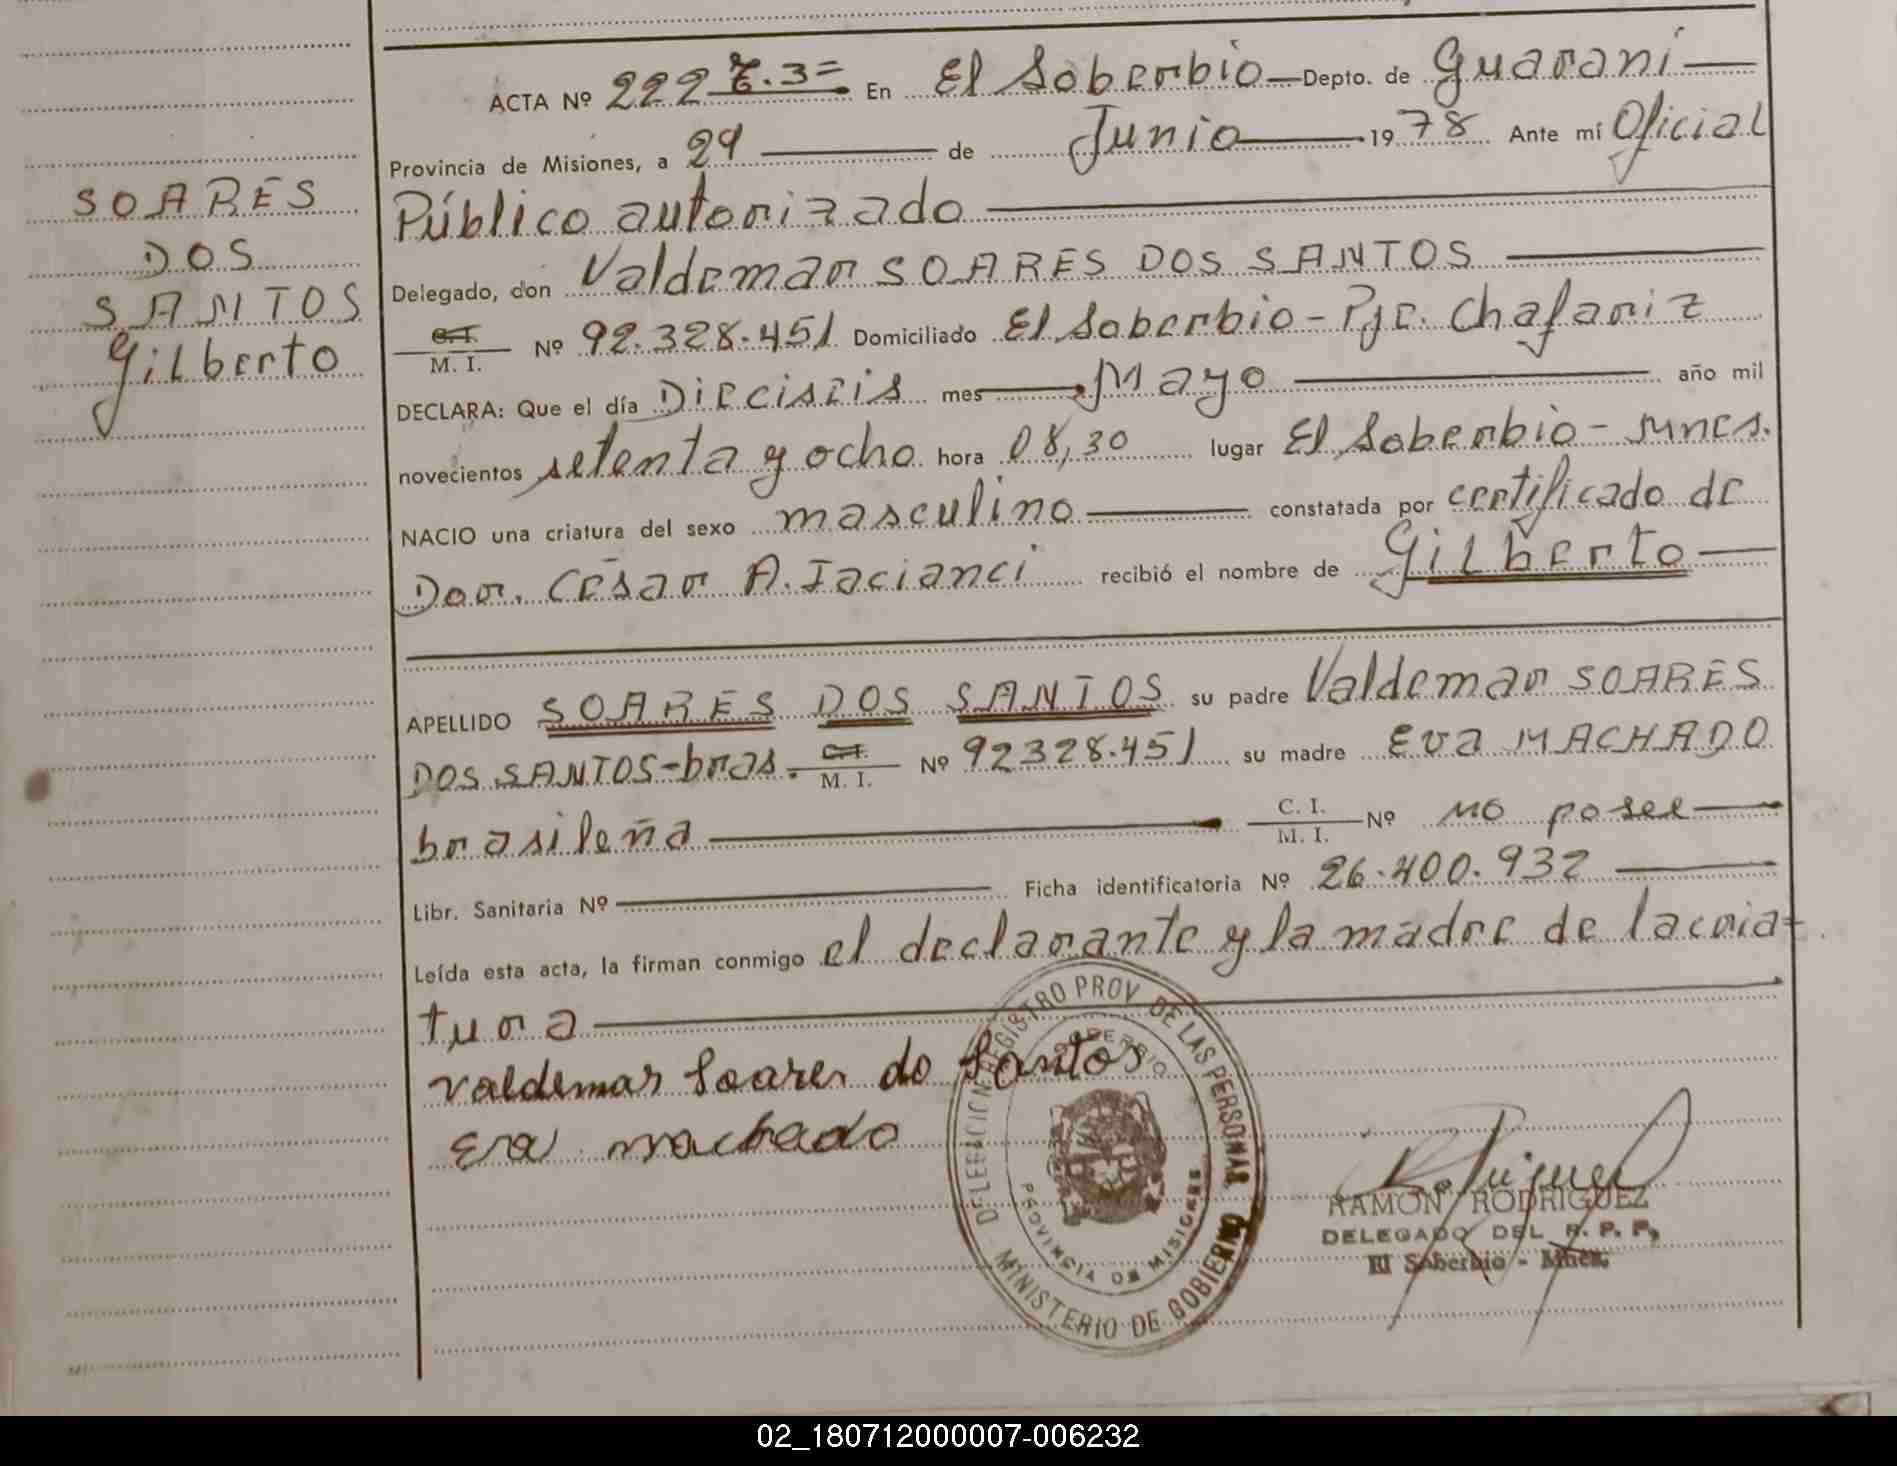 SOARES
DOS
SANTOS
Gilberto
ACTA Nº 222 T. 3= En El Soberbio Depto. de Guaraní
Provincia de Misiones, a 29 de Junio 1978 Ante mí Oficial
Público autorizado
Delegado, don Valdemar SOARES DOS SANTOS
C.I.
M. I. Nº 92.328.451 Domiciliado El Soberbio - Pje. Chafariz
DECLARA: Que el día Dieciseis mes Mayo año mil
novecientos setenta y ocho hora 08,30 lugar El Soberbio - Mnes.
NACIO una criatura del sexo masculino constatada por certificado de
Dor. César A. Jacianci recibió el nombre de Gilberto
APELLIDO SOARES DOS SANTOS su padre Valdemar SOARES
DOS SANTOS - bras. C.I.
M. I. Nº 92328.451 su madre Eva MACHADO
brasileña C. I.
M. I. Nº no posee
Libr. Sanitaria Nº Ficha identificatoria Nº 26.400.932
Leída esta acta, la firman conmigo el declarante y la madre de la cria-
tura
Valdemar Soares do Santos
Eva machado
DELEGACION REGISTRO PROV. DE LAS PERSONAS
SOBERBIO
PROVINCIA DE MISIONES
MINISTERIO DE GOBIERNO
RAMON RODRIGUEZ
DELEGADO DEL R. P. P.
El Soberbio - Mnes.
02_180712000007-006232